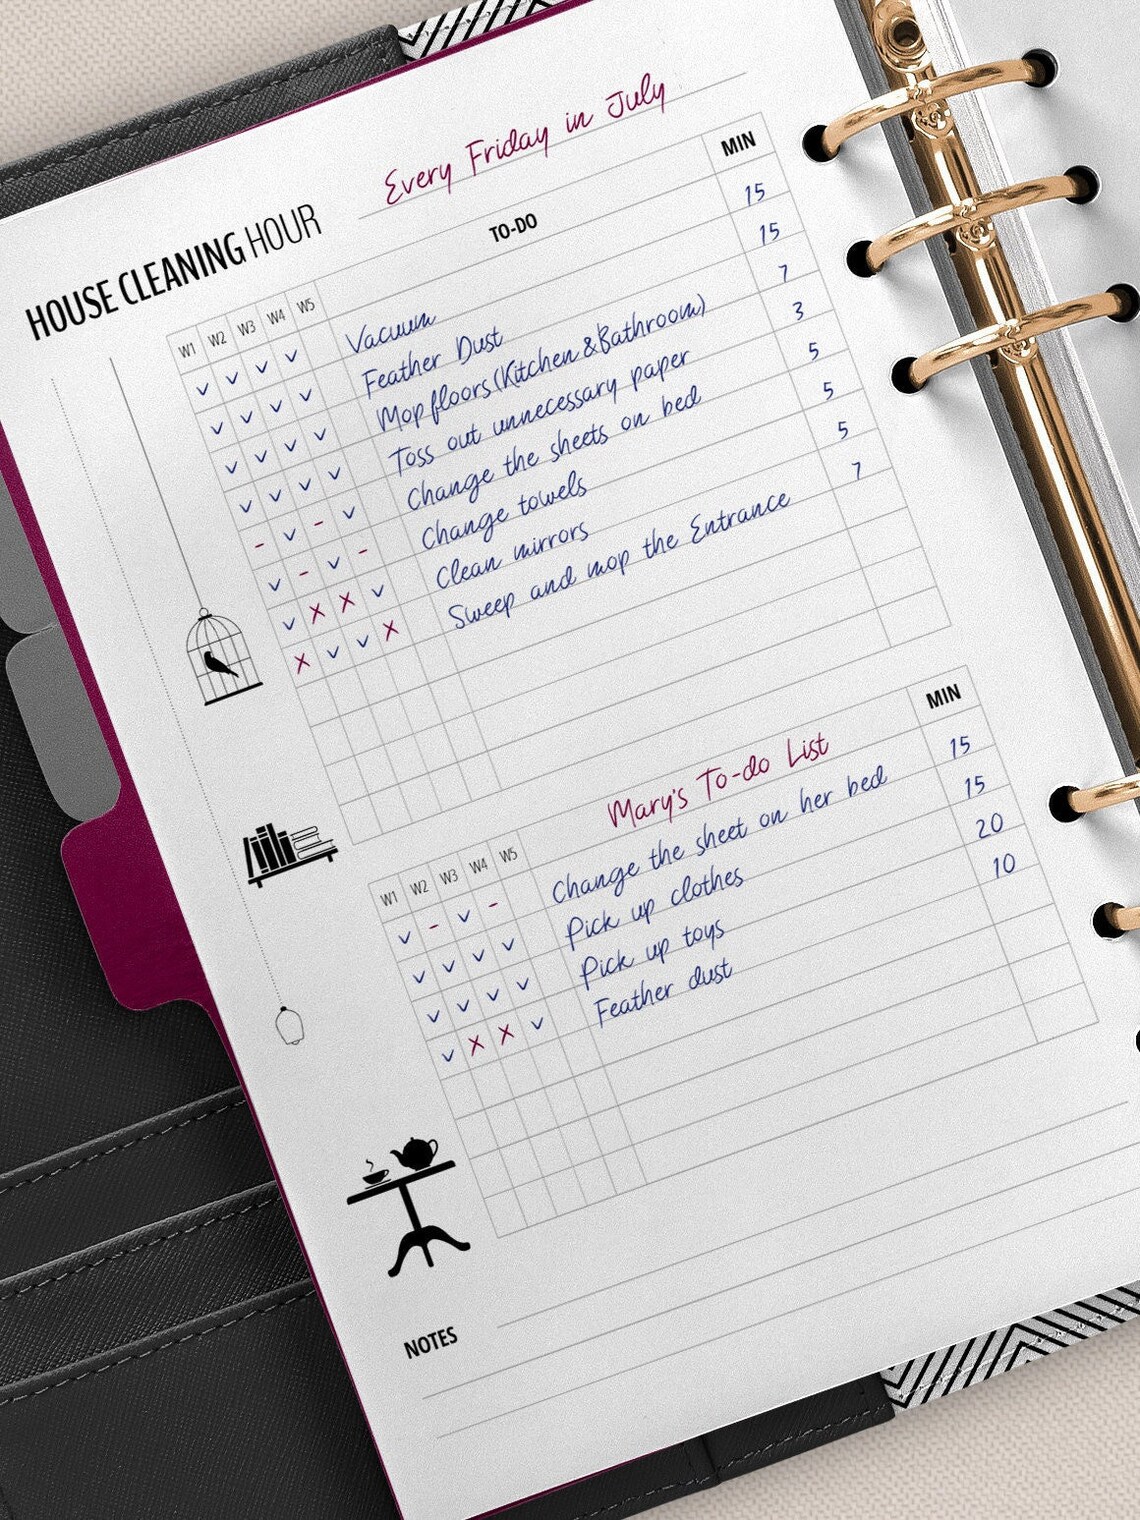 HOUSE CLEANING HOUR Every Friday in July
W1 W2 W3 W4 W5 TO-DO MIN
✓ ✓ ✓ ✓ Vacuum 15
✓ ✓ ✓ ✓ Feather Dust 15
✓ ✓ ✓ ✓ Mop floors (Kitchen & Bathroom) 7
✓ ✓ ✓ ✓ Toss out unnecessary paper 3
- ✓ - ✓ Change the sheets on bed 5
✓ - ✓ - Change towels 5
✓ X X ✓ Clean mirrors 5
X ✓ ✓ X Sweep and mop the Entrance 7
W1 W2 W3 W4 W5 Mary's To-do List MIN
✓ - ✓ - Change the sheet on her bed 15
✓ ✓ ✓ ✓ Pick up clothes 15
✓ ✓ ✓ ✓ Pick up toys 20
✓ X X ✓ Feather dust 10
NOTES